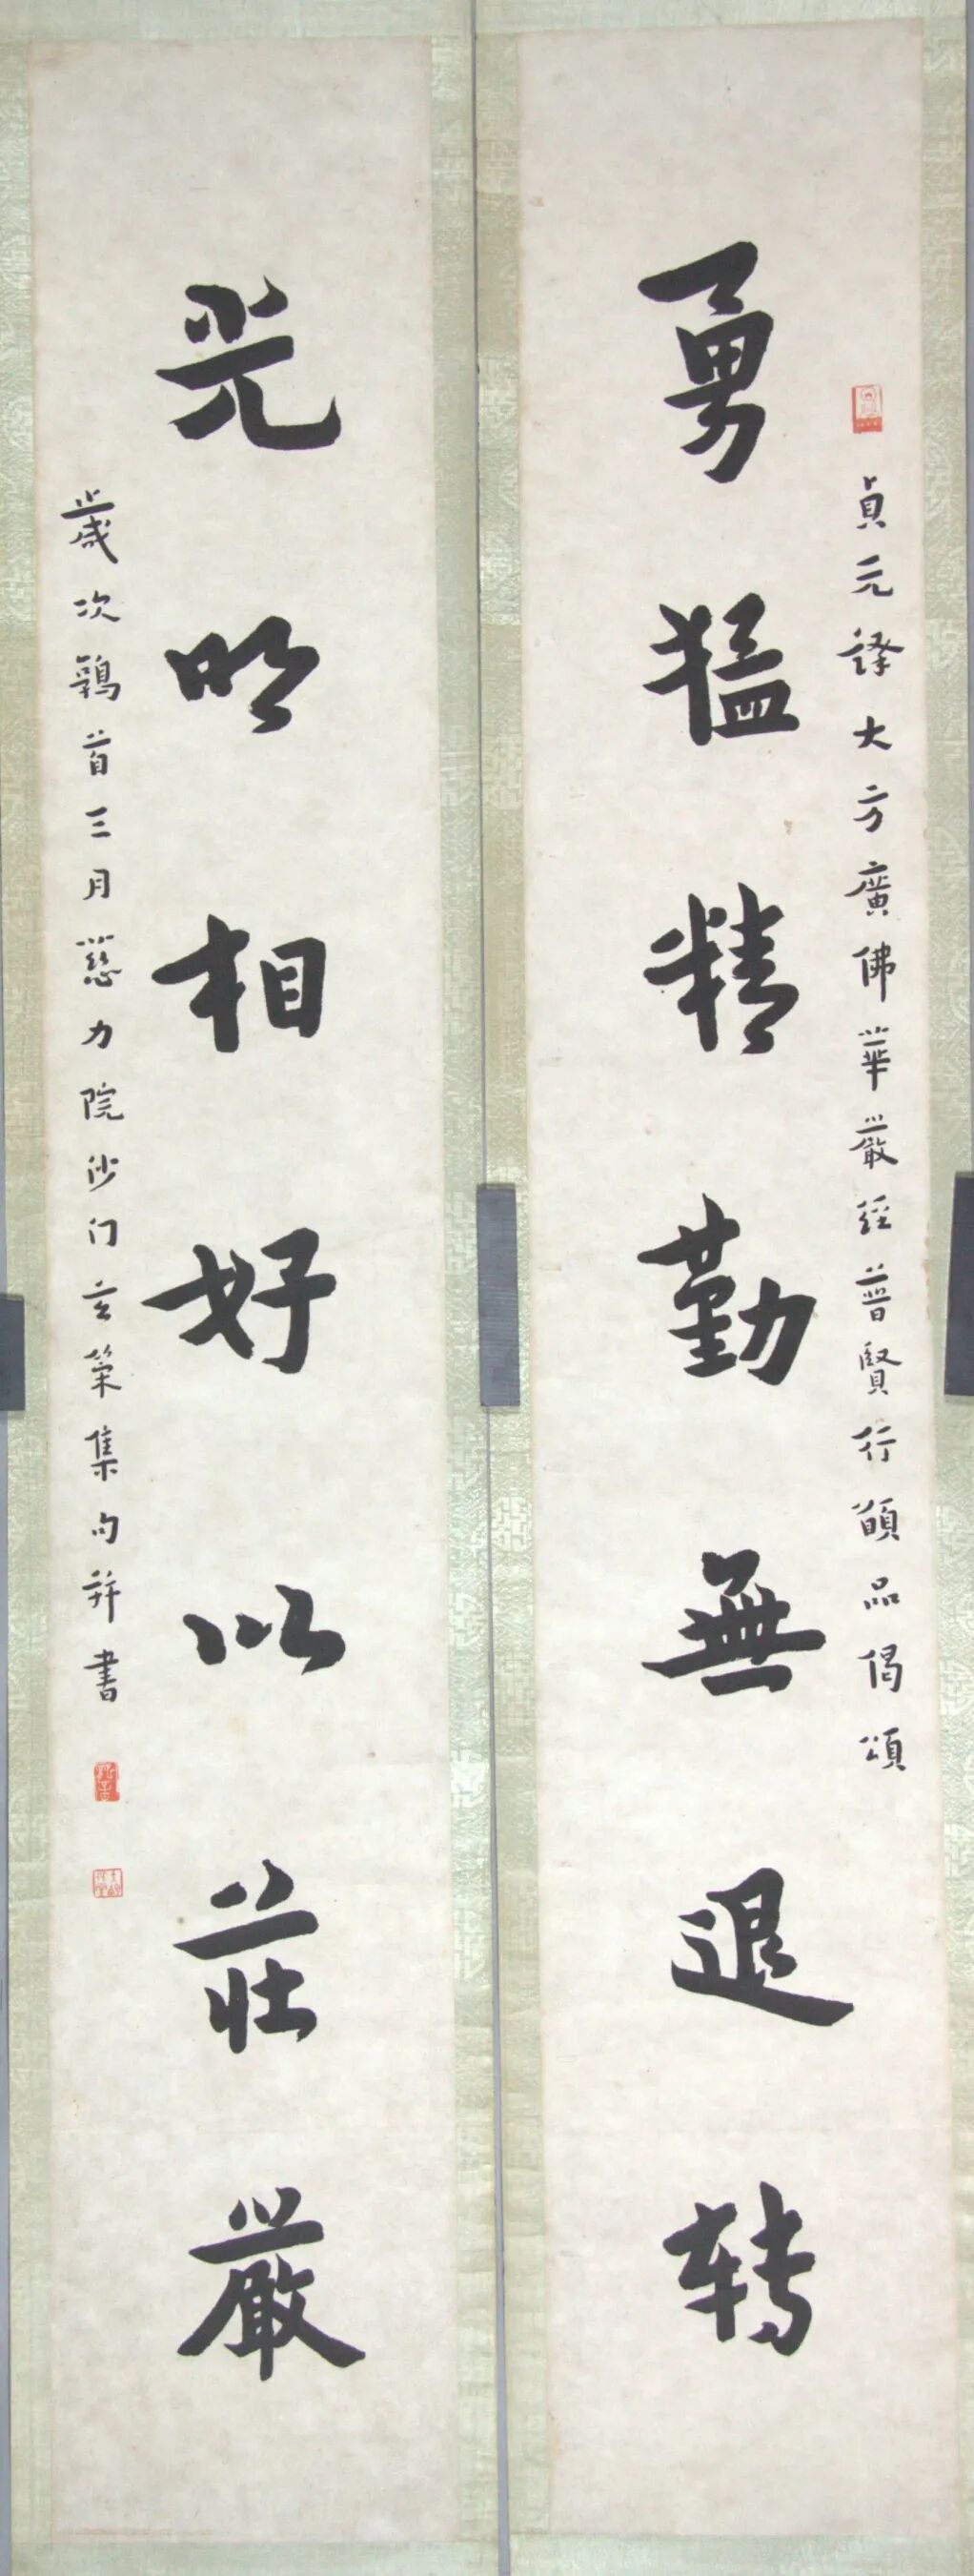 貞元譯大方廣佛華嚴經普賢行願品偈頌
勇猛精勤無退转
光明相好以莊嚴
歲次鶉首三月慈力院沙门玄策集句并書